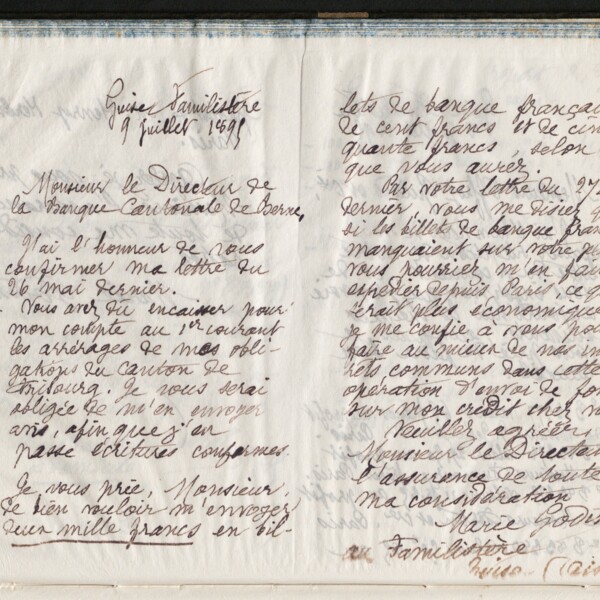 Guise Familistère
9 juillet 1895
Monsieur le Directeur de
la Banque Cantonale de Berne,
J'ai l'honneur de vous
confirmer ma lettre du
26 mai dernier.
Vous avez dû encaisser pour
mon compte au 1er courant
les arrérages de mes obli-
gations du canton de
Fribourg. Je vous serai
obligée de m'en envoyer
avis, afin que j'en
passe écritures conformes.
Je vous prie, Monsieur,
de bien vouloir m'envoyer
deux mille francs en bil-
lets de banque françai
de cent francs et de cin
quante francs, selon
que vous aurez.
Par votre lettre du 27
dernier, vous me disiez q
si les billets de banque fran
manquaient sur votre
vous pourriez m'en fai
expédier depuis Paris, ce q
serait plus économique
je me confie à vous pou
faire au mieux de nos in
rets communs dans cette
opération d'envoi de fon
sur mon crédit chez v
Veuillez agréer,
Monsieur le Directeu
l'assurance de toute
ma considération
Marie Godin
au Familistère
Guise (Ais